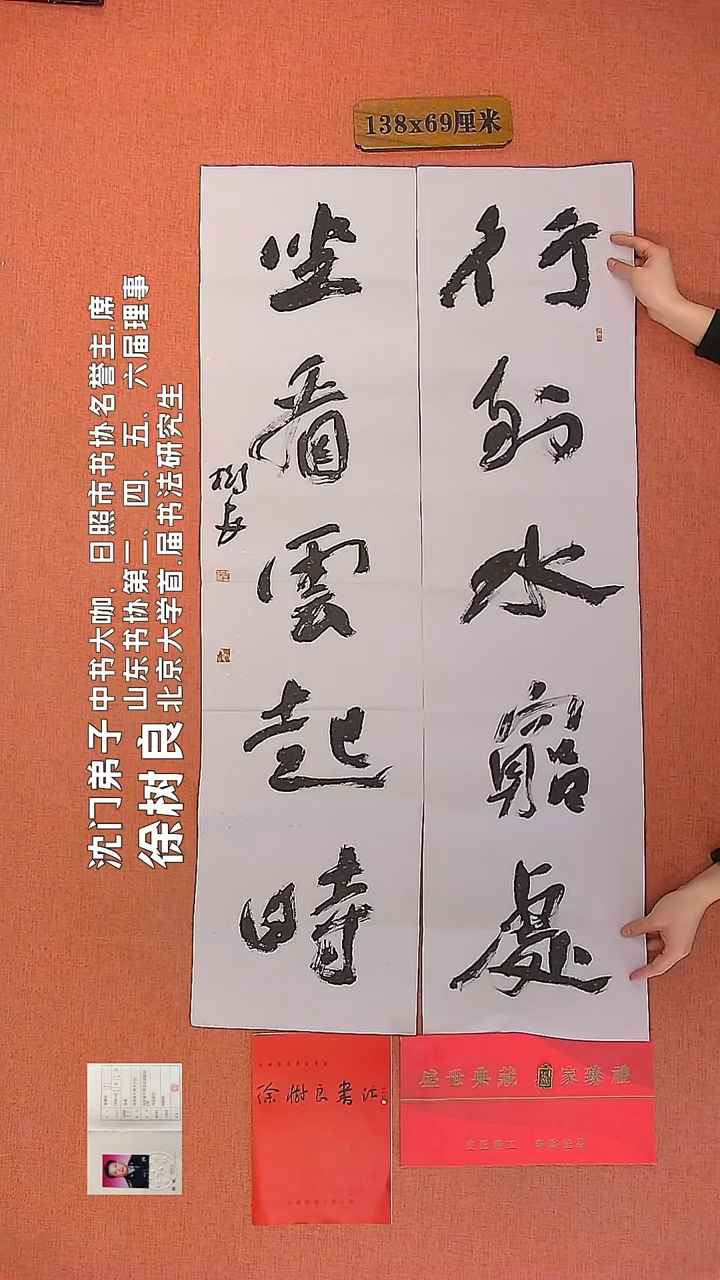 138x69厘米
行到水窮處
坐看雲起時
樹良
沈门弟子
徐树良
中书大咖，日照市书协名誉主.席
山东书协第二、四、五、六届理事
北京大学首.届书法研究生
徐樹良書法
盛世典藏 國家臻禮